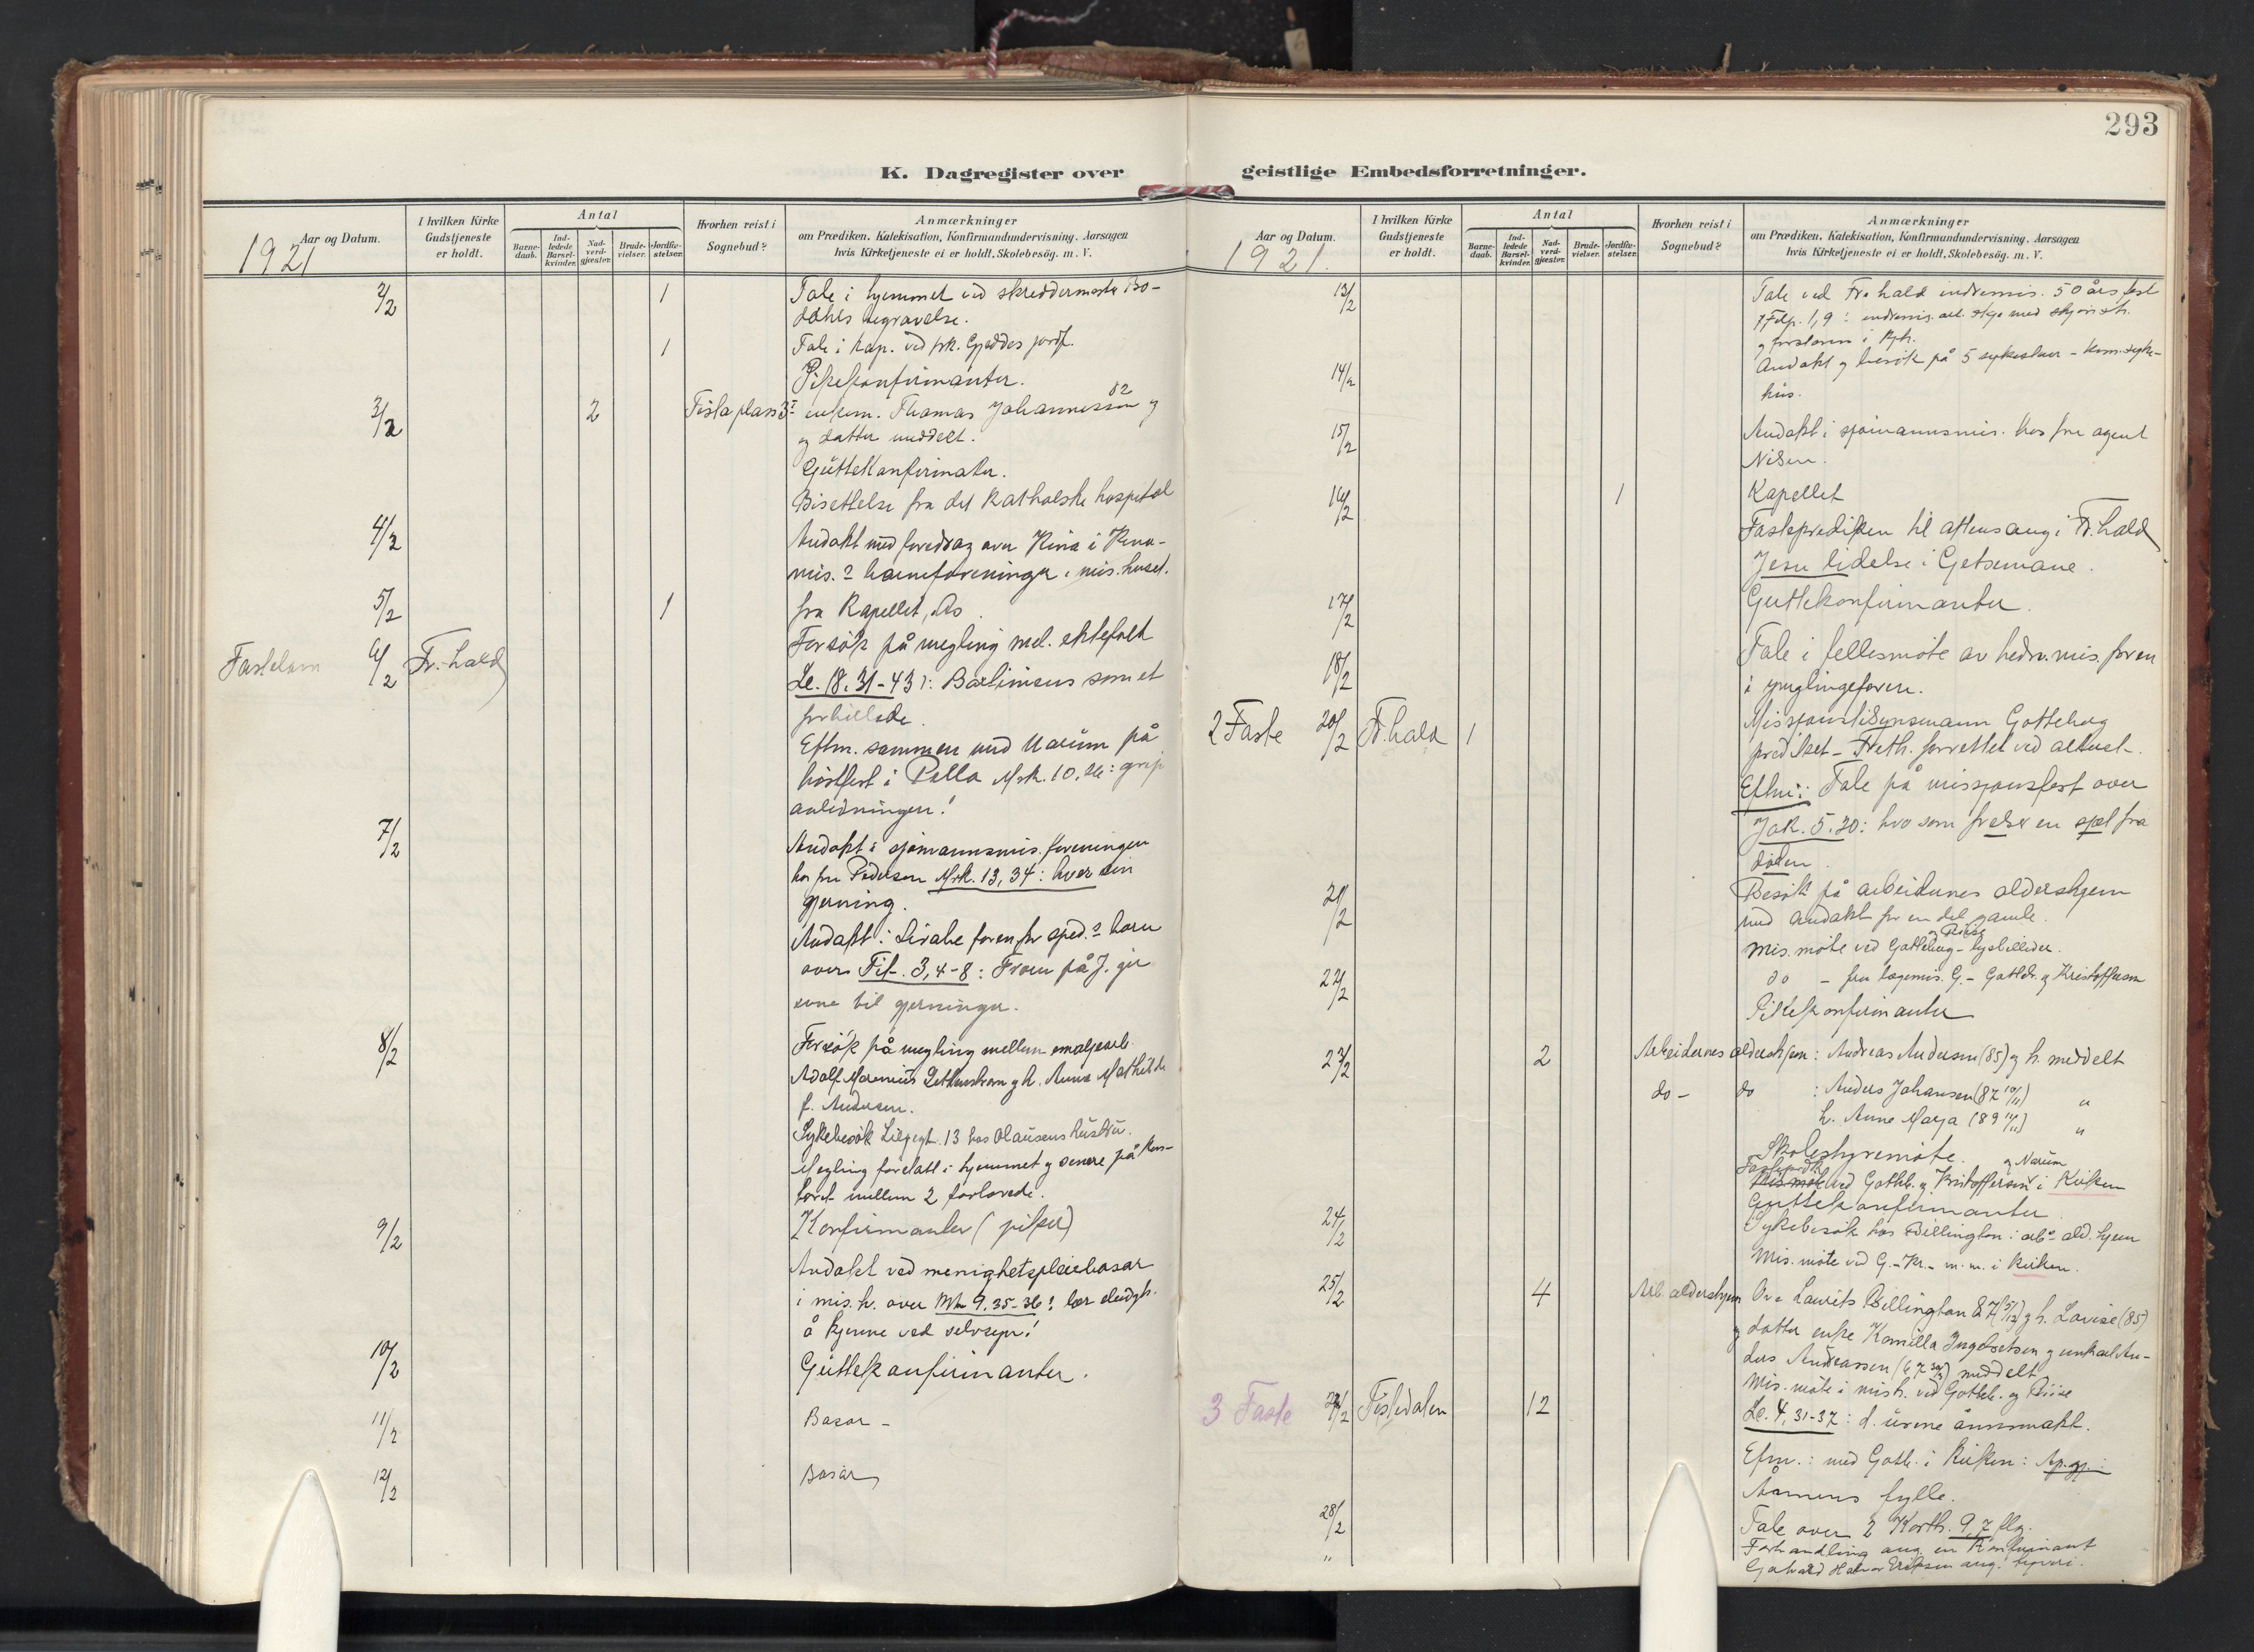 293
K. Dagregister over geistlige Embedsforretninger.
Aar og Datum.
1921
I hvilken Kirke Gudstjeneste er holdt.
Antal
Barnedaab.
Indledede Barselkvinder.
Nadverdgjæster.
Brudevielser.
Jordfæstelser.
Hvorhen reist i Sognebud?
Anmærkninger
om Prædiken, Katekisation, Konfirmandundervisning, Aarsagen
hvis Kirketjeneste ei er holdt, Skolebesøg. m. V.
2/2 1 Tale i hjemmet ved skreddermester Bo-
dahls begravelse.
1 Tale i kap. ved frk. Gjeddes jordf.
Pikekonfirmanter.
3/2 2 Fistaplass 3 enkem. Thomas Johannessøn 82 og
og datter meddelt.
Guttekonfirmanter.
Bisettelse fra det katholske hospital
4/2 Andakt med foredrag over Kina i Kina-
mis. barneforeninger i mis.huset.
5/2 1 fra Kapellet, Ås
Forsök på megling mel. ektefolk
Fastelavn 6/2 Fr.hald Lc. 18, 31-43: Bartimeus som et
forbillede.
Eftm. sammen med Narum på
höstfest i Pella Mrk. 10. : grip
anledningen!
7/2 Andakt i sjömannsmis.foreningen
hos fru Pedersen Mrk. 13, 34: hver sin
gjerning.
Andakt i Sirahe foren. for sped. barn
over Tit. 3, 4-8: Troen på J. gir
evne til gjerninger.
8/2 Forsök på megling mellem
Adolf Marenius og h. Anna Mathilde
f. Andersen.
Sykebesök 13 hos Olausens hustru.
Megling foretatt i hjemmet og senere på kon-
toret mellem 2 forlovede.
9/2 Konfirmanter (piker)
Andakt ved menighetspleiebasar
i mis.h. over Mt 9, 35-36: lær
å kjenne ved selvsyn!
10/2 Guttekonfirmanter.
11/2 Basar -
12/2 Basar
Aar og Datum.
1921.
I hvilken Kirke Gudstjeneste er holdt.
Antal
Barnedaab.
Indledede Barselkvinder.
Nadverdgjæster.
Brudevielser.
Jordfæstelser.
Hvorhen reist i Sognebud?
Anmærkninger
om Prædiken, Katekisation, Konfirmandundervisning, Aarsagen
hvis Kirketjeneste ei er holdt, Skolebesög. m. V.
13/2 Tale ved Fr.hald indremis. 50 års fest
1, 9: indremis. arb. skje med
og i
14/2 Andakt og besök på 5 sykestuer - Kom. syke-
hus.
15/2 Andakt i sjömannsmis. hos fru agent
Nilsen.
16/2 1 Kapellet
Fasteprediken til aftensang i Fr.hald
Jesu lidelse i Getsemane.
17/2 Guttekonfirmanter.
18/2 Tale i fellesmöte av hedn.mis.foren
i ynglingeforen.
2 Faste 20/2 Fr.hald 1 Missjonstilsynsmann Gotteberg
prediket - forrettet ved alteret.
Eftm: Tale på missjonsfest over
Jak. 5.20: hvo som frelser en sjæl fra
döden.
21/2 Besök på arbeidernes aldershjem
med andakt for en del gamle.
Mis. möte ved Gotteberg og - lysbilleder.
22/2 do - fru lægemis. G. - Gotteb. og Kristoffersen
Pikekonfirmanter
23/2 2 Arbeidernes aldershjem: Andreas Andersen (85) og h. meddelt
do - do : Anders Johansen (87 10/11) "
h. Anne Marja (89 11/11) "
Skolestyremöte.
Fasteprdk ved Gotteb. og Kristoffersen og Narum i Kirken
24/2 Guttekonfirmanter.
Sykebesök hos Billington i arb. ald. hjem
Mis. möte ved G. - Kr. - m. m. i Kirken.
25/2 4 Arb. aldershjem Ove Laurits Billington 87 (5/12) og h. Lovise (85)
og datter enke Kamilla Ingebretsen og An-
ders Andreassen (67) meddelt
Mis. möte i mish. ved Gotteb. og
3 Faste 27/2 Tistedalen 12 Lc. 4, 31-37: d. urene ånnsmakt.
Efm.: med Gotteb. i Kirken: Ap.gj.:
Ånnens fylle.
28/2 Tale over 2 Korth. 9, 7 flg.
" Forhandling ang. en konfirmant
Halvor Eriksen ang. tyveri.